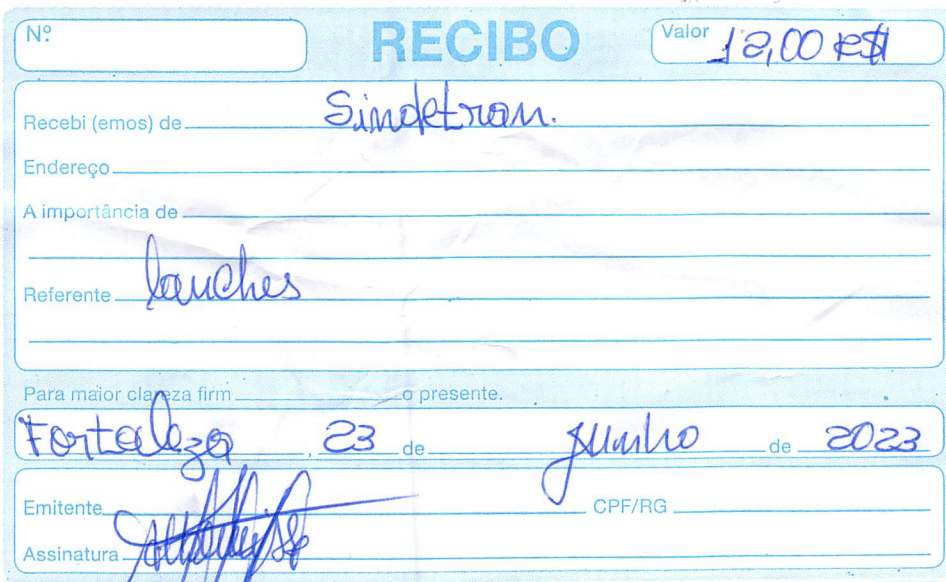 Nº
RECIBO
Valor 18,00 R$
Recebi (emos) de Sindetran.
Endereço
A importância de
Referente lanches
Para maior clareza firm o presente.
Fortaleza, 23 de Junho de 2023
Emitente CPF/RG
Assinatura